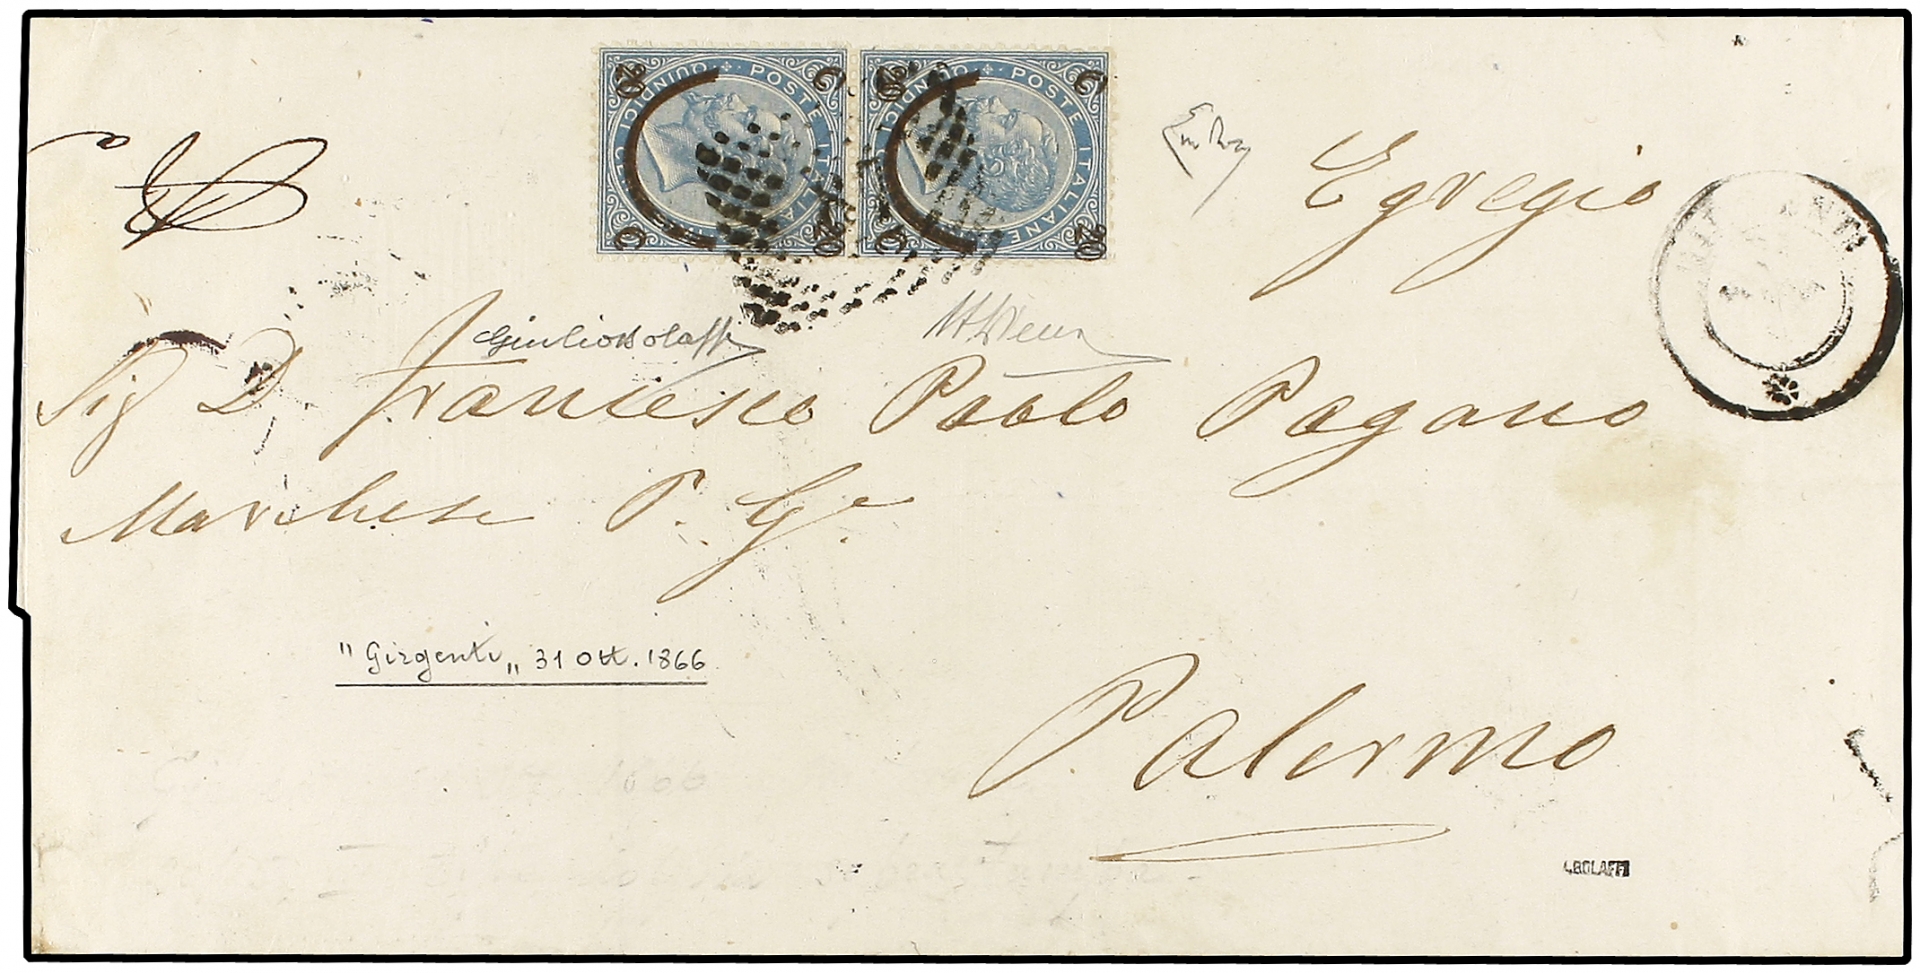 C 20 QUINDICI C. POSTE ITALIANE C 20
C 20 QUINDICI C. POSTE ITALIANE C 20
Egregio
Giulio Bolaffi
Sig D Francesco Paolo Pagano
Marchese P. Ge.
"Girgenti„ 31 Ott. 1866
Palermo
G.BOLAFFI